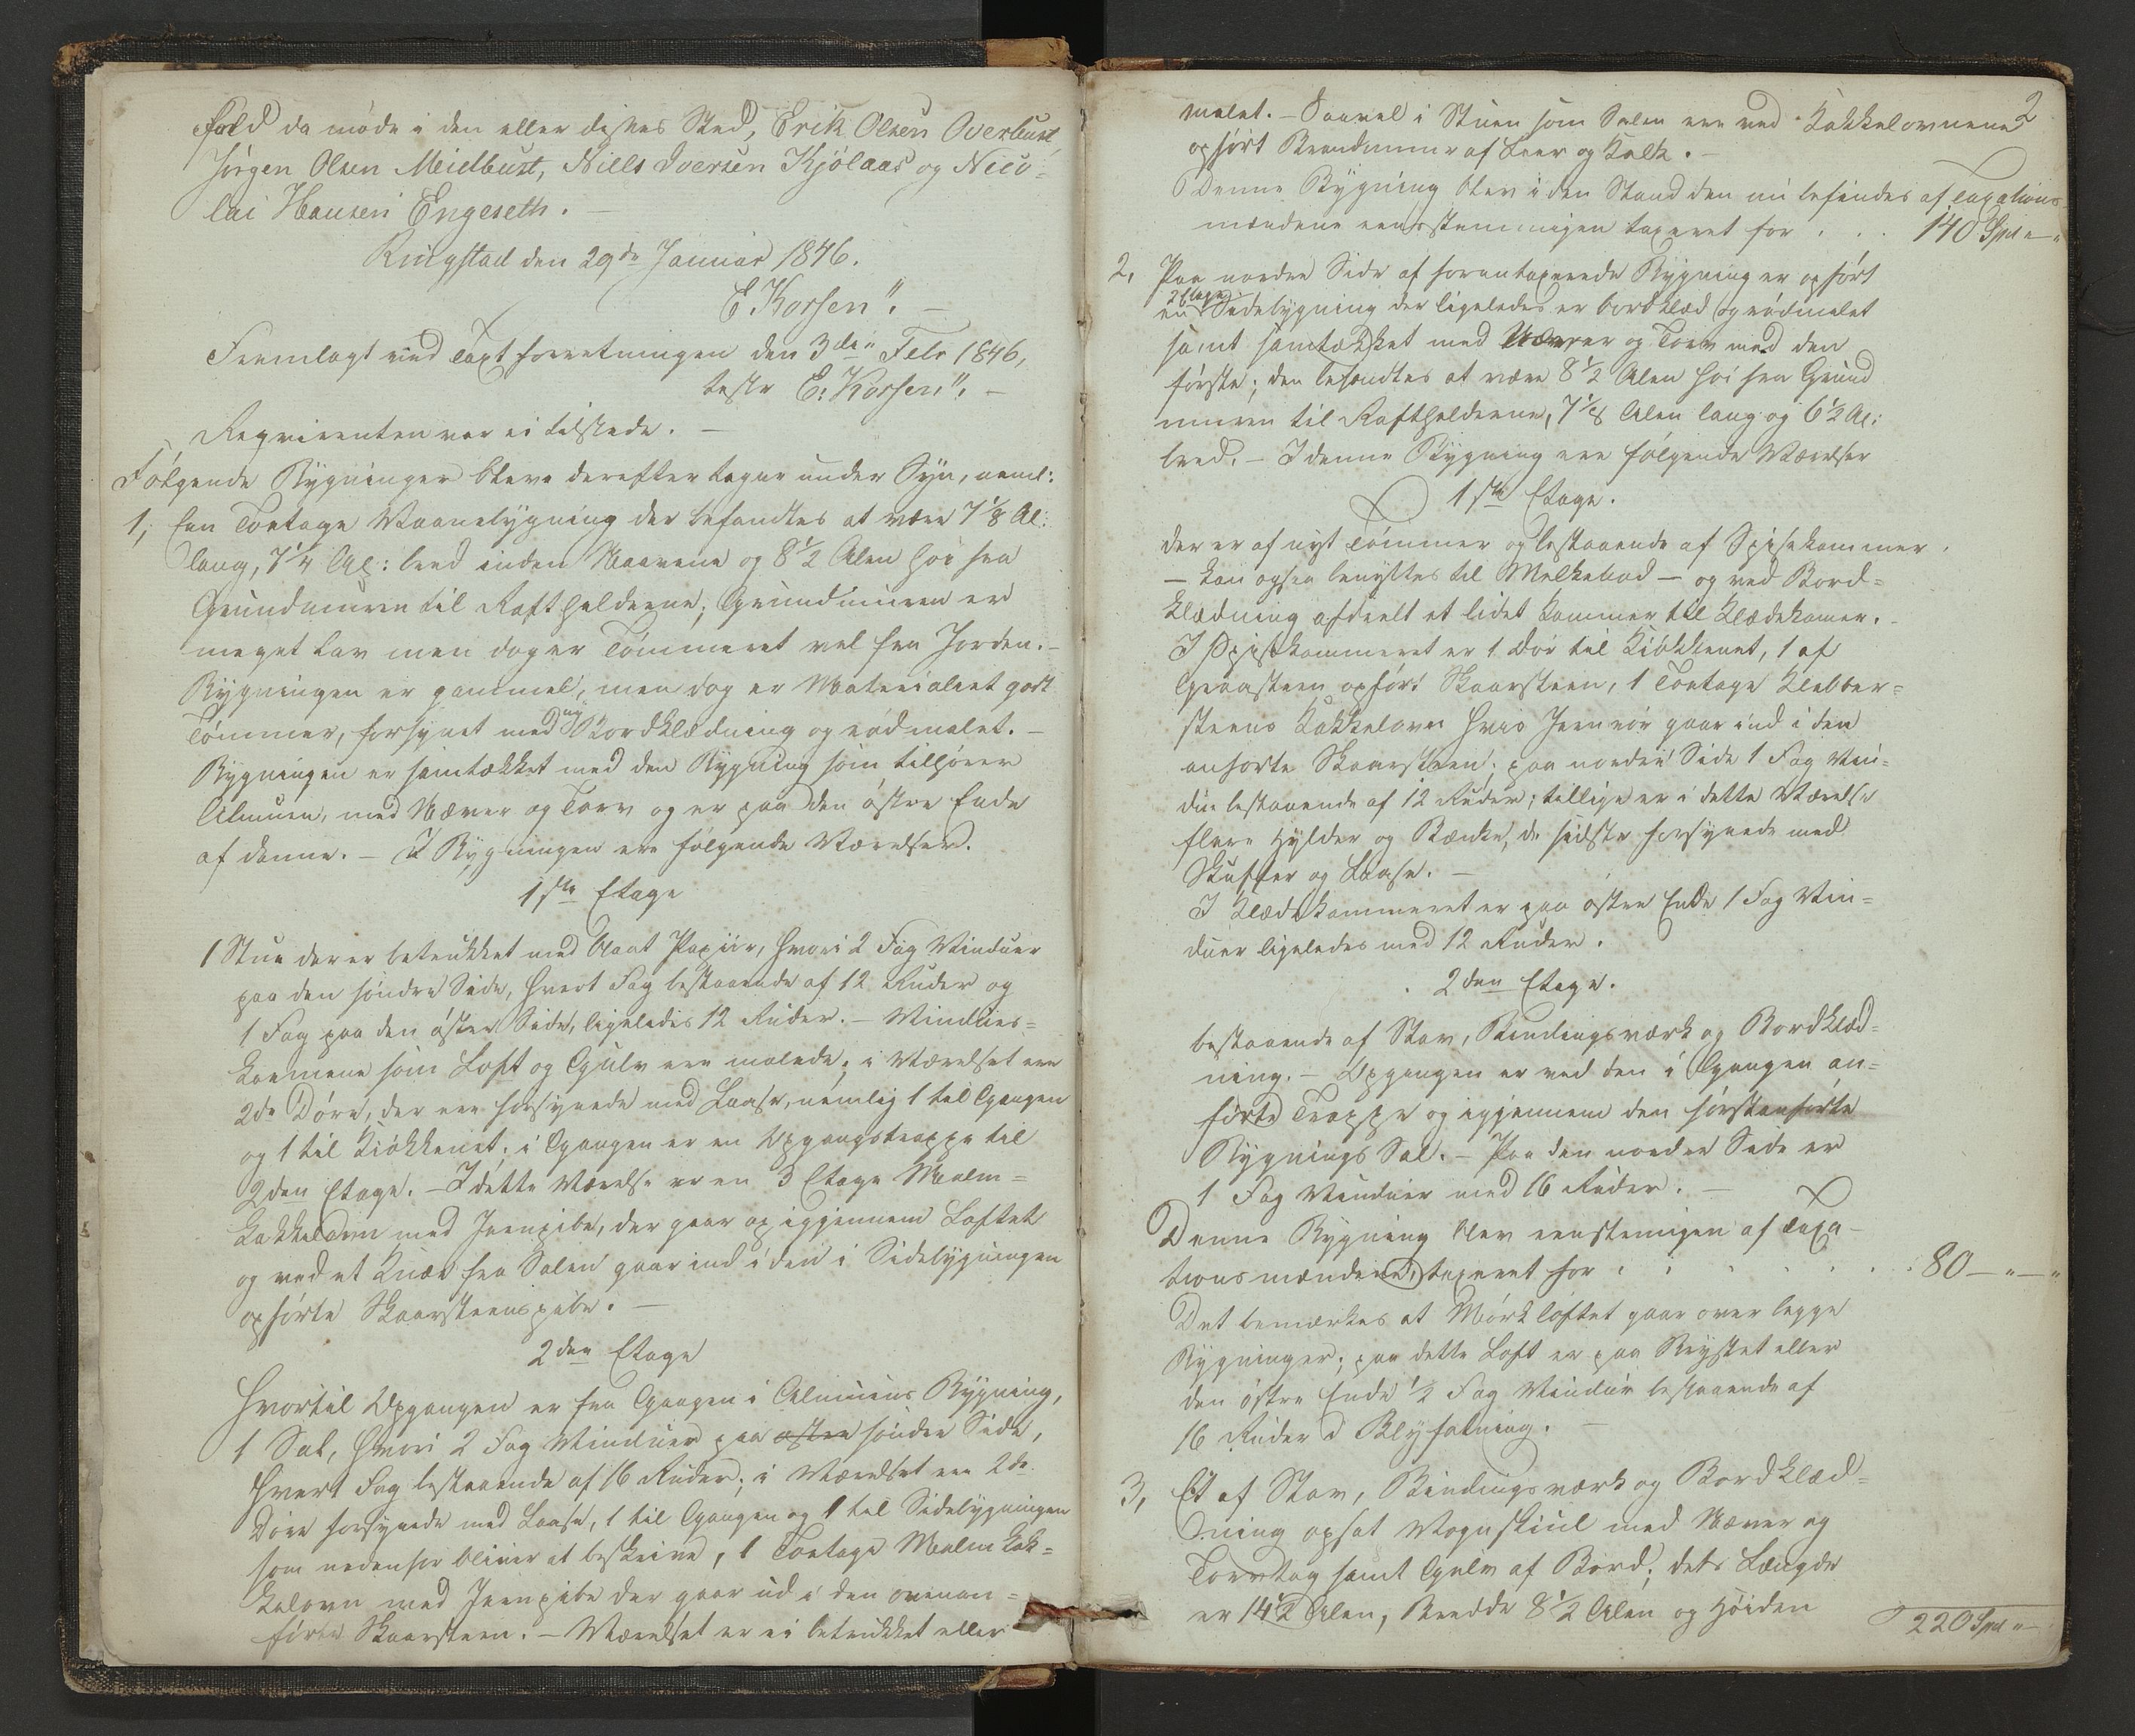 fald da møde i den eller disses Sted, Erik Olsen Overbust,
Jørgen Olsen Meidbust, Niels Iversen Kjölaas og Nico=
lai Hansen Engeseth. —
Ringstad den 29de Januar 1846.
E. Korsen". —
Fremlagt ved Taxtforretningen den 3die Febr 1846,
testr E: Korsen". —
Reqvirenten var ei tilstede. —
Følgende Bygninger bleve derefter tagne under Syn, neml:
1, Een Toetages Vaanebygning der befandtes at være 7 1/8 Al:
lang, 7 1/4 Al: bred inden Noverne og 8 1/2 Alen høi fra
Grundmuren til Raftholderne; Grundmuren er
meget lav men dog er Tømmeret vel fra Jorden. —
Bygningen er gammel, men dog er Materialiet godt
Tømmer, forsynet med ny Bordklædning og rødmalet. —
Bygningen er samtækket med den Bygning som tilhører
Almuen, med Næver og Torv og er paa den østre Ende
af denne. — I Bygningen ere følgende Værelser.
1ste Etage
1 Stue der er betrukket med blaat Papiir, hvori 2 Fag Vinduer
paa den søndre Side, hvert Fag bestaaende af 12 Ruder og
1 Fag paa den østre Side, ligeledes 12 Ruder. — Vindues=
karmene som Loft og Gulv ere malede; i Værelset ere
2de Døre, der ere forsynede med Laase, nemlig 1 til Gangen
og 1 til Kiøkkenet; i Gangen er en Opgangstrappe til
2den Etage. — I dette Værelse er en 3 Etages Malm=
kakkelovn med Jernpibe, der gaar op igjennem Loftet
og ved et Knæe fra Salen gaar ind i den i Sidebygningen
opførte Skaarsteenspibe. —
2den Etage
Hvortil Opgangen er fra Gangen i Almuens Bygning,
1 Sal, hvori 2 Fag Vinduer paa østre søndre Side,
hvert Fag bestaaende af 16 Ruder; i Værelset ere 2de
Døre forsynede med Laase, 1 til Gangen og 1 til Sidebygningen
som nedenfor bliver at beskrive, 1 Toetages Malm Kak=
kelovn med Jernpibe der gaar ud i den ovenan=
førte Skaarsteen. — Værelset er ei betrukket eller
2
malet. — Saavel i Stuen som Salen ere ved Kakkelovnene
opført Brandmuur af Leer og Kalk. —
Denne Bygning blev i den Stand den nu befindes af Taxations=
mændene eensstemmigen taxeret for . . . 140 Spd " — "
2, Paa nordre Side af forantaxerede Bygning er opført
en 2 Etages Sidebygning der ligeledes er bordklæd og rødmalet
samt samtækket med Næver og Torv med den
første; den befandtes at være 8 1/2 Alen høi fra Grund
muren til Rafthelderne, 7 1/8 Alen lang og 6 1/2 Al:
bred. — I denne Bygning ere følgende Værelser
1ste Etage.
der er af nyt Tømmer og bestaaende af Spisekammer
— kan ogsaa benyttes til Melkebod — og ved Bord=
klædning afdeelt et lidet Kammer til Klædekamer. —
I Spisekammeret er 1 Dør til Kiøkkenet, 1 af
Graasteen opført Skaarsteen, 1 Toetages Klebber=
steens Kakkelovn hvis Jernrør gaar ind i den
anførte Skaarsteen; paa nordre Side 1 Fag Vin=
due bestaaende af 12 Ruder; tillige er i dette Værelse
flere Hylder og Bænke, de sidste forsynede med
Skuffer og Laase. —
I Klædekammeret er paa østre Ende 1 Fag Vin=
duer ligeledes med 12 Ruder.
2den Etage.
bestaaende af Stav, Bindingsværk og Bordklæd=
ning. — Opgangen er ved den i Gangen an=
førte Trappe og igjennem den førstanførte
Bygnings Sal. — Paa den nordre Side er
1 Fag Vinduer med 16 Ruder. —
Denne Bygning blev eenstemigen af Taxa-
tionsmændene taxeret for . . . . . . . 80 — " — "
Det bemærkes at Mørkloftet gaar over begge
Bygninger; paa dette Loft er paa Brystet eller
den østre Ende 1/2 Fag Vindue bestaaende af
16 Ruder i Blyfatning. —
3, Et af Stav, Bindingsværk og Bordklæd=
ning opsat Vognskiul med Næver og
Torvtag samt Gulv af Bord; dets Længde
er 14 1/2 Alen, Bredde 8 1/2 Alen og Høiden
220 Spd " —